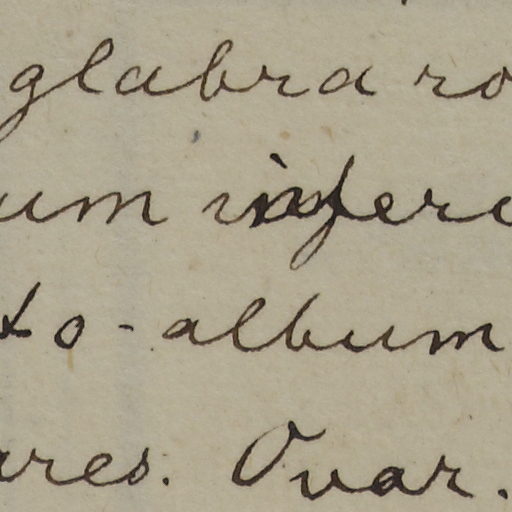 glabra ro
um infere
to-album
ares. Ovar.